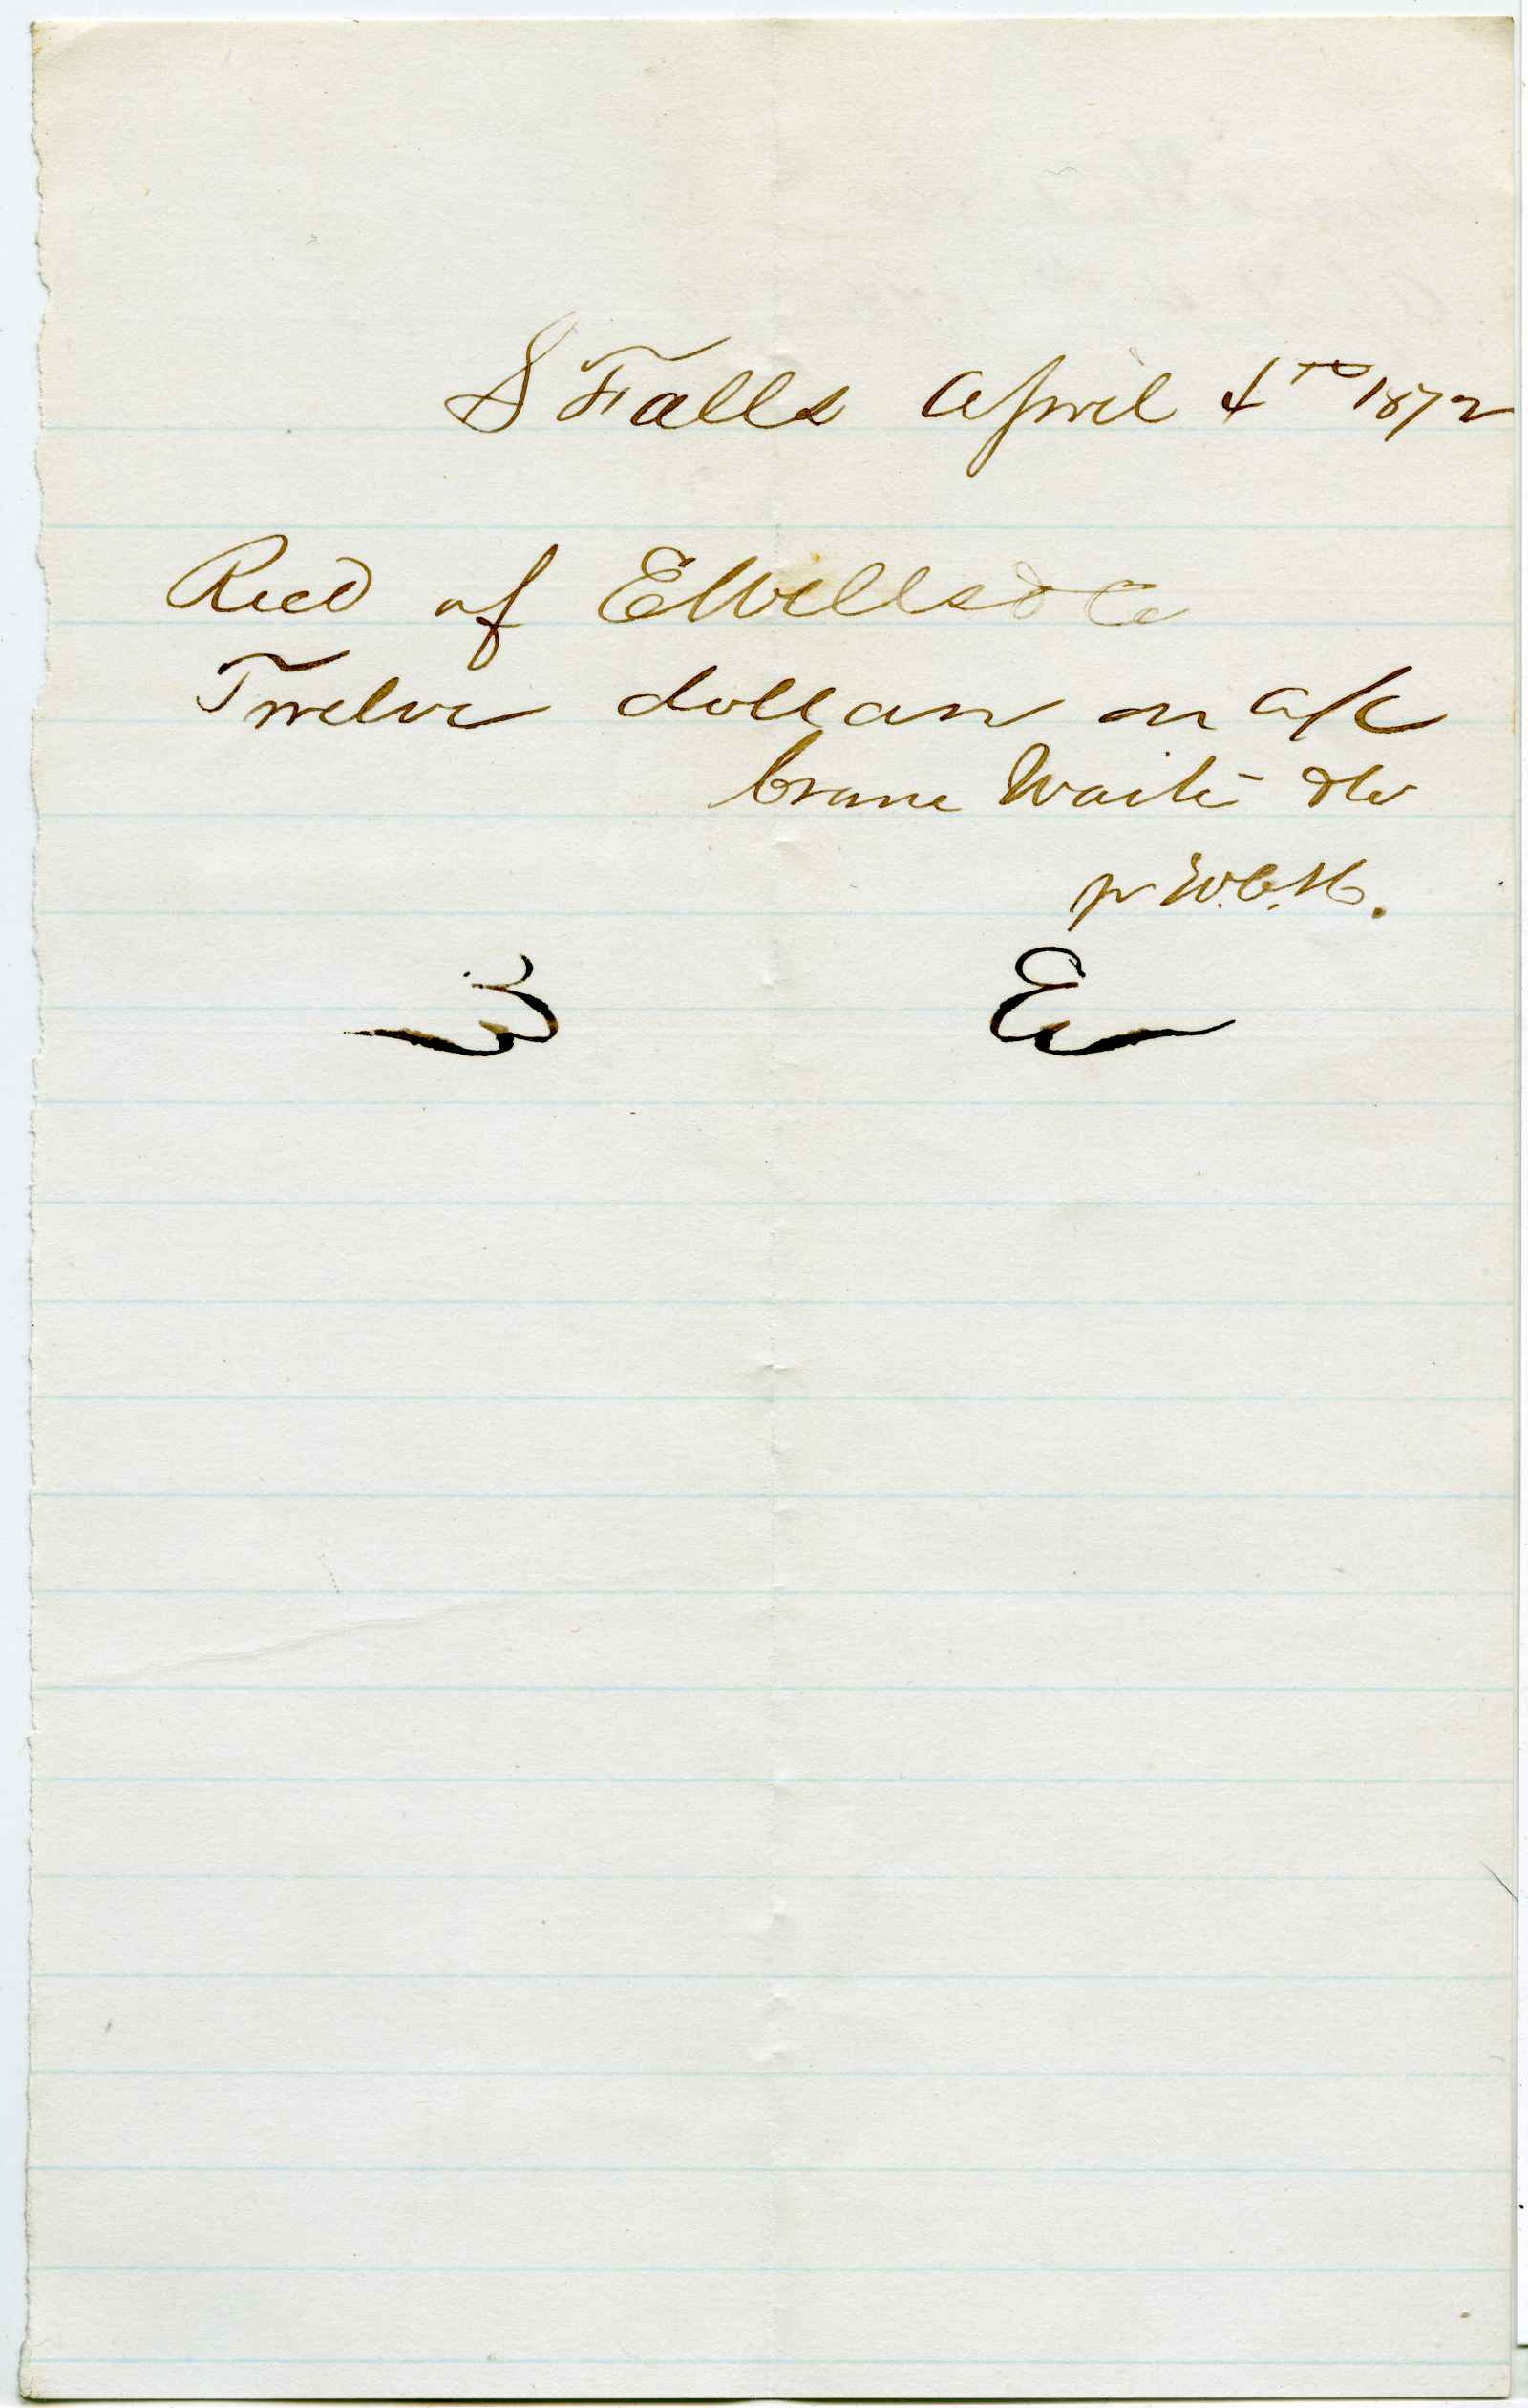 S Falls April 4th 1872
Recd of E Wells & Co
Twelve dollars on a/c
Crane Waite & Co
pr W.C.H.
E